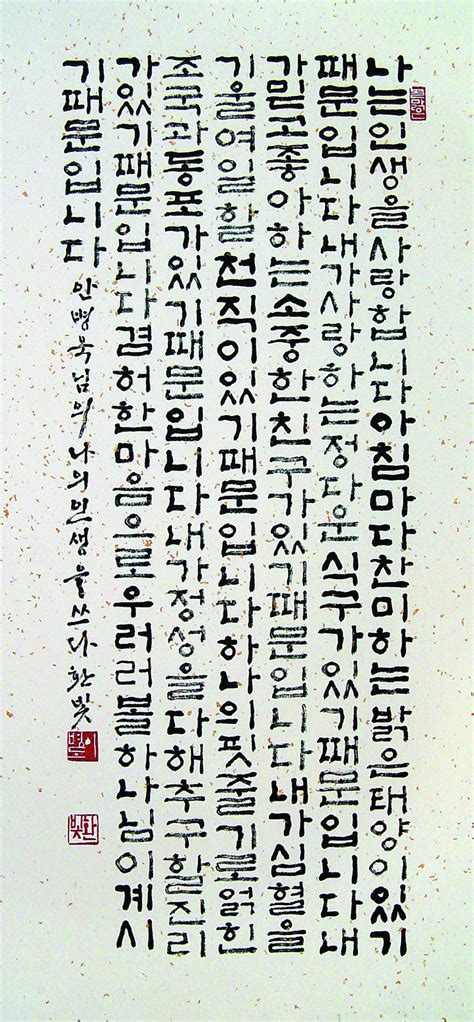 나는인생을사랑합니다아침마다찬미하는밝은태양이있기
때문입니다내가사랑하는정다운식구가있기때문입니다내
가믿고좋아하는소중한친구가있기때문입니다내가심혈을
기울여일할천직이있기때문입니다하나의핏줄기로얽힌
조국과동포가있기때문입니다내가정성을다해추구할진리
가있기때문입니다겸허한마음으로우러러볼하나님이계시
기때문입니다 안병욱님의 나의 인생을 쓰다 환빛
환빛